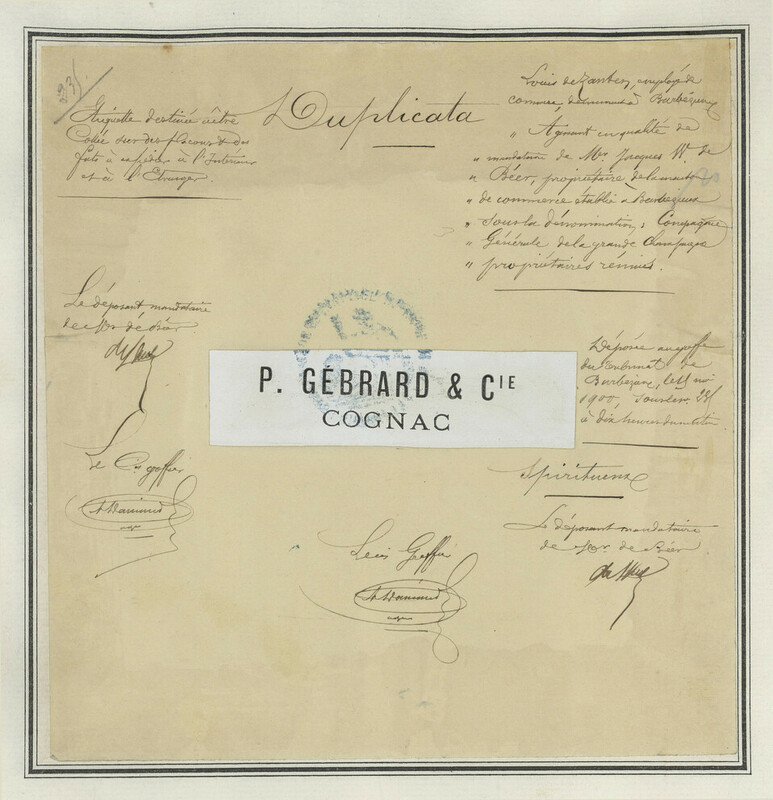 Duplicata
Étiquette destinée à être
Collée sur des flacons & des
fûts à expédier à l'Intérieur
et à l'Etranger
Louis de employé de
commerce demeurant à Barbezieux
" Agissant en qualité de
" mandataire de Mr. Jacques W. de
" Béer, propriétaire de la maison
" de commerce établie à Barbezieux
" sous la dénomination : Compagnie
" Générale de la grande Champagne
" propriétaires réunies.
Le déposant mandataire
de Mr de Béer
P. GÉBRARD & CIE
COGNAC
Déposée au greffe
du Tribunal de
Barbezieux, le mai
1900, sous le no
à dix heures du matin
Spiritueux
Le Cis greffier
Le déposant mandataire
de Mr. de Béer
Le Cis Greffier